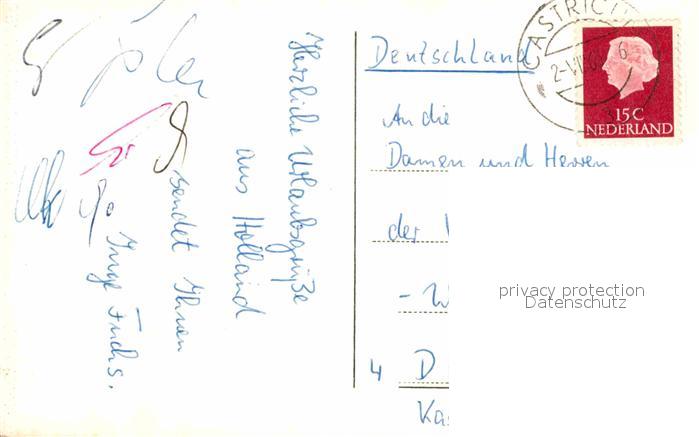 Herzliche Urlaubsgrüße
aus Holland
sendet Ihnen
Inge Fuchs.
Deutschland
An die
Damen und Herren
der
- W
4 D
Kas
CASTRICUM
2-VII
6
15 C
NEDERLAND
privacy protection
Datenschutz